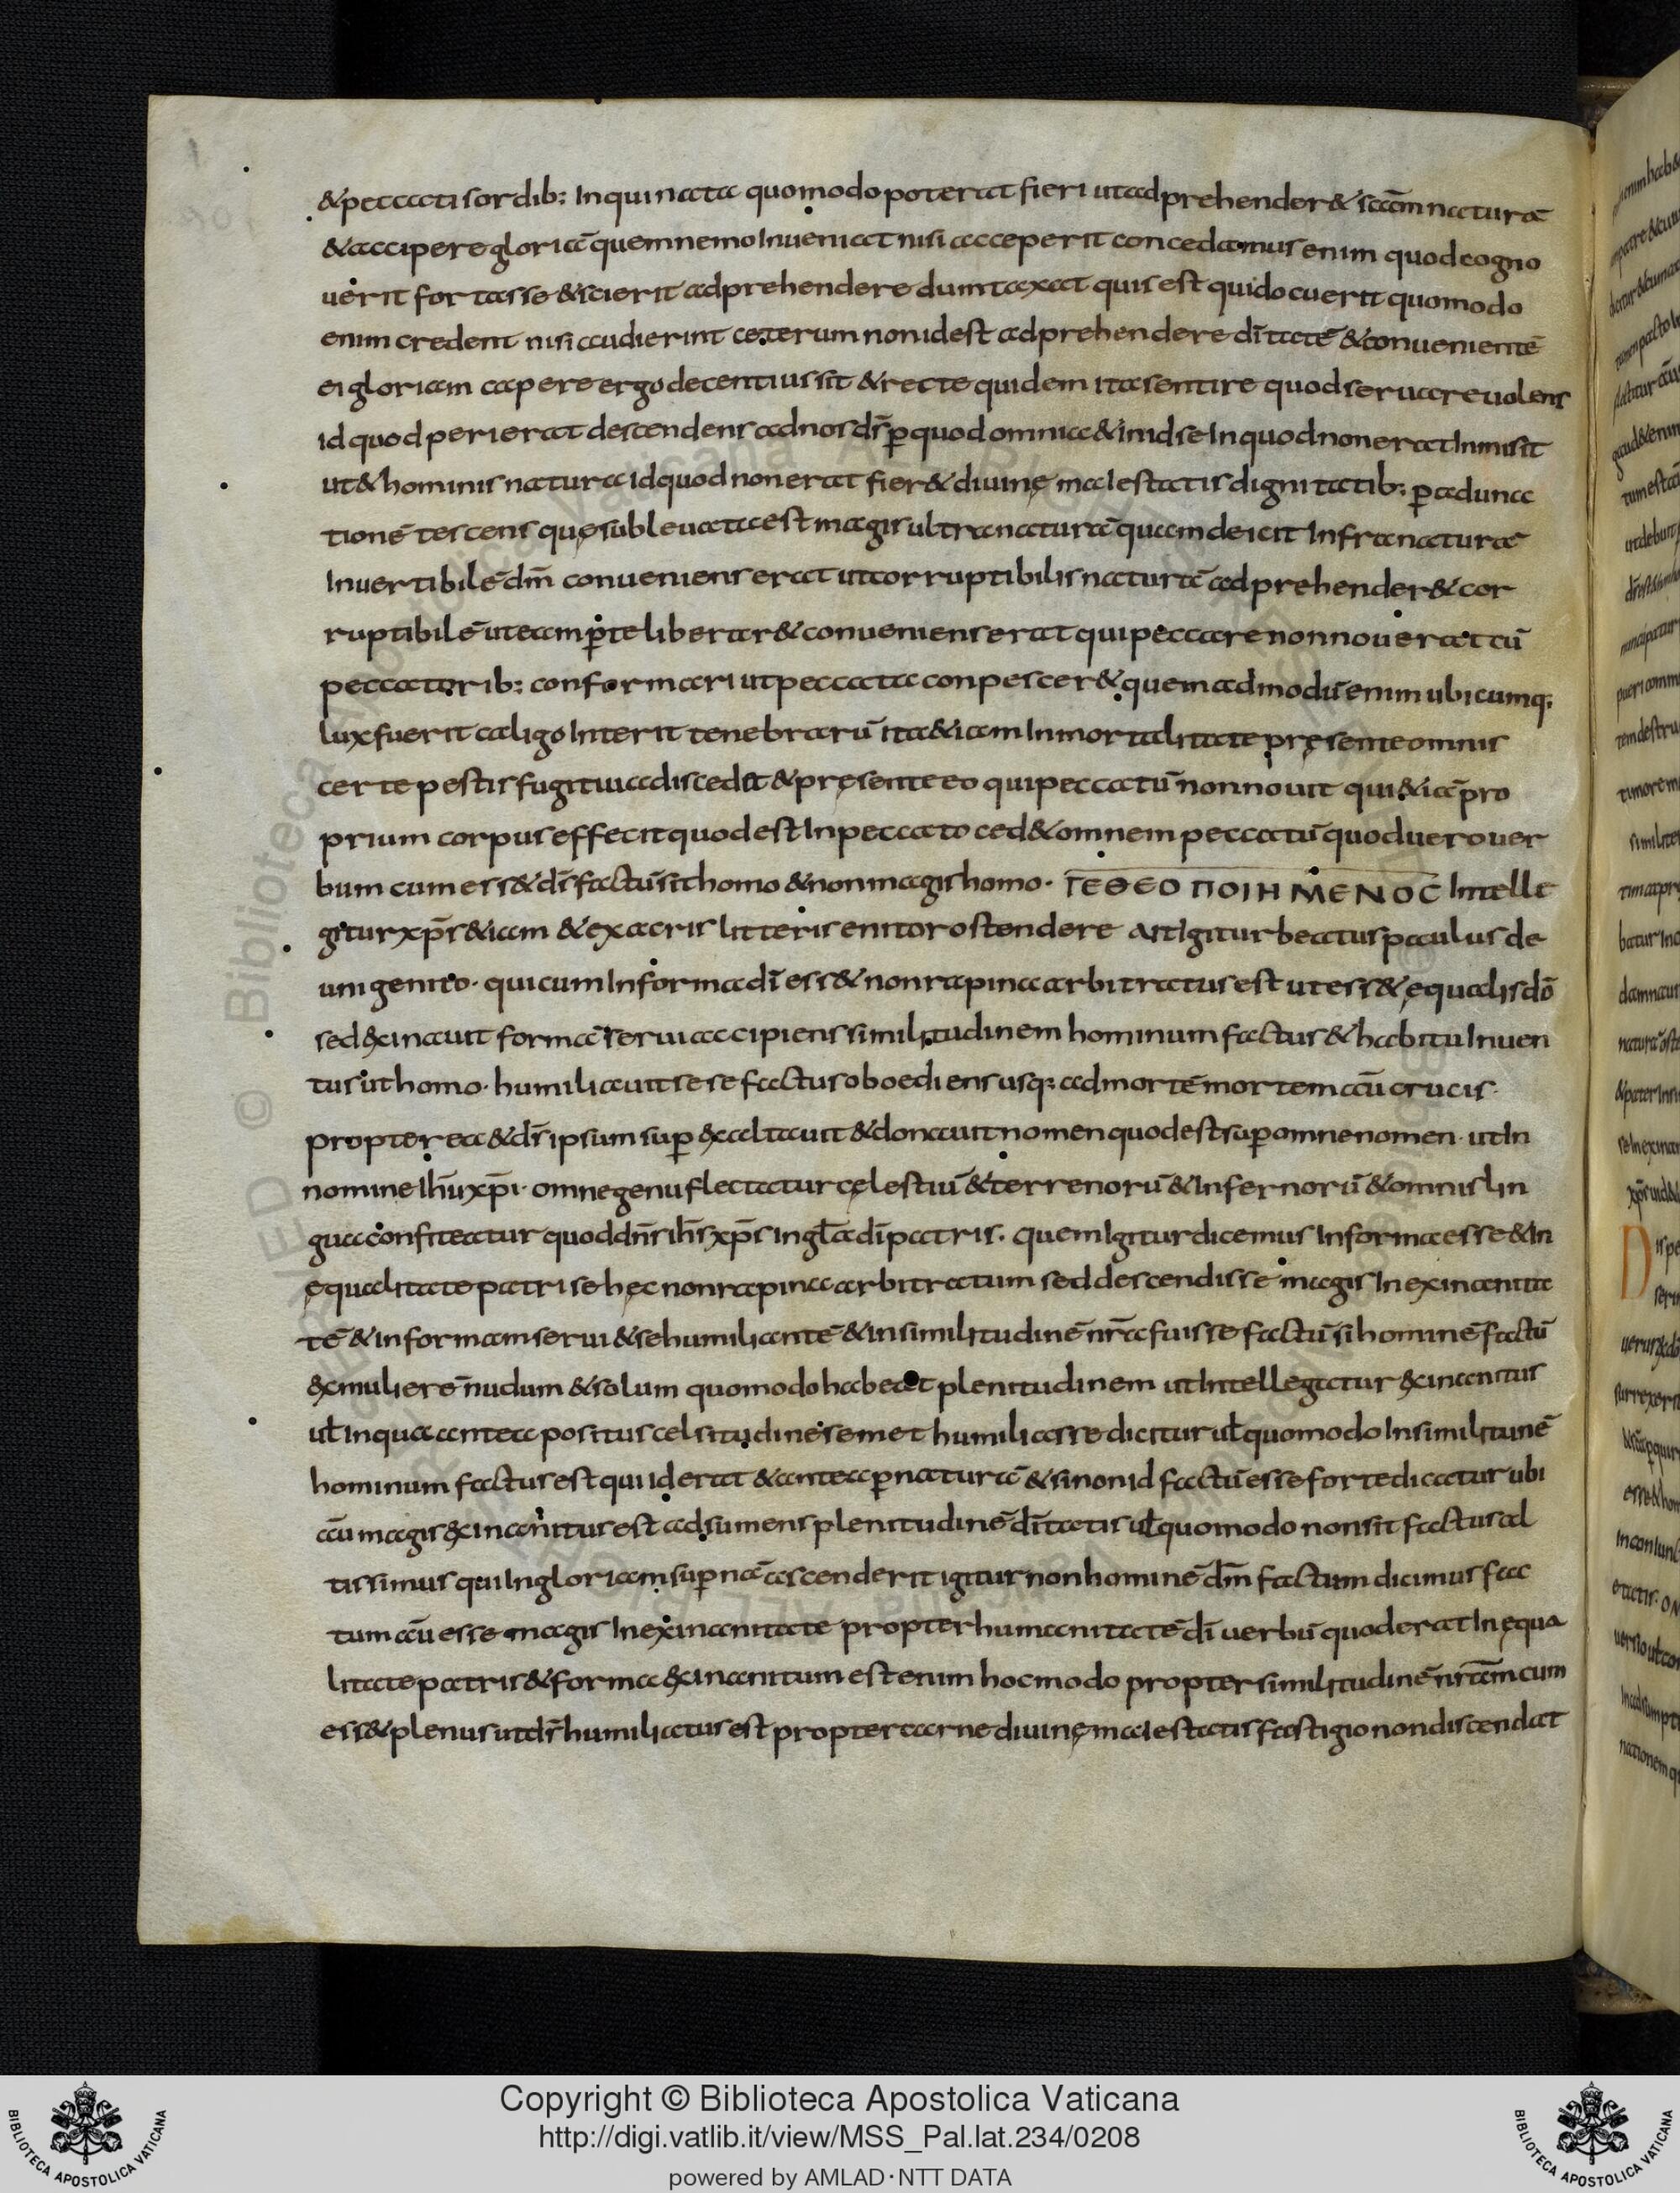 &peccati sordib; Inquinata quomodo poterat fieri utadprehender& scām naturā
&accipere gloriā quemnemo Inueniat nisi acceperit concedamus enim quodcogno
uerit fortasse &scierit adprehendere dumtaxat quis est quidocuerit quomodo
enim credent nisi audierint ceterum nonidest adprehendere dītatē &conuenientē
ei gloriam capere ergo decentius sit &recte quidem ita sentire quod seruare uolens
id quod perierat descendens adnos dī̄s p̄ quod omnia &imidse Inquodnonerat Inmisit
ut&hominis natura idquod nonerat fier& diuinę maiestatis dignitatib; p̄aduna
tionē tescens quęsubleuata est magis ultranaturā quamdeicit Infranaturā
Inuertibilē dm̄ conueniens erat utcorruptibilis naturā adprehender& cor
ruptibilē uteam p̄te liberar& conueniens erat quipeccare nonnouerat cū
peccatorib; conformari utpeccata conpescer& quemadmodū enim ubicumq;
lux fuerit caligo Interit tenebrarū ita&iam Inmortalitate pręsente omnis
certe pestis fugitiua discedat &pręsente eo quipeccatū nonnouit qui&iā pro
prium corpus effecit quodest Inpeccato ced&omnem peccatū quoduero uer
bum cum ess&dī̄s factū sit homo &nonmagis homo· ΓΕΘΕΟ ΠΟΙΗ ΜΕΝΟC Intelle
gitur xp̄s &iam &exacris litteris enitor ostendere Ait Igitur beatus paulus de
unigenito· quicum Informa dī ess& nonrapina arbitratus est utess& ęqualis dō
sed &xinauit formā serui accipiens similitudinem hominum factus & habitu Inuen
tus ut homo· humiliauit sese factus oboediens usq; admortē mortem aū crucis·
propterea &dī̄s ipsum sup̄ &xaltauit &donauit nomen quodest sup̄omnenomen· utIn
nomine Ihū xp̄i· omnegenu flectatur cęlestiū &terrenorū &Infernorū &omnis lin
gua confiteatur quod dn̄s ih̄s xp̄s Inglā dī patris. Quem Igitur dicemus Informa esse &In
ęqualitate patri sehęc nonrapina arbitratum seddescendisse magis Inexinanita
tē &Informam serui &sehumiliantē &insimilitudinē nr̄ā fuisse factū si hominē factū
&xmulierē nudum &solum quomodo habeat plenitudinem utIntellegatur &xinanitus
ul̄ Inqua antea positus celsitudinē semet humiliasse dicitur ul̄ quomodo Insimilitunē
hominum factus est qui iderat &antea p̄naturā &sinonid factū esse forte dicatur ubi
aū magis &xinanitus est adsumens plenitudinē dītatis ul̄ quomodo nonsit factus al
tissimus qui Ingloriam sup̄nā ascenderit igitur nonhominē dm̄ factum dicimus fac
tum aū esse magis Inexinanitate propter humanitatē dī uerbū quoderat Inęqua
litate patris &forma &xinanitum est enim hocmodo propter similitudinē nr̄am cum
ess&plenus utdī̄s humiliatus est propter carne diuinę maiestatis fastigio nondiscendat
Copyright © Biblioteca Apostolica Vaticana
http://digi.vatlib.it/view/MSS_Pal.lat.234/0208
powered by AMLAD·NTT DATA